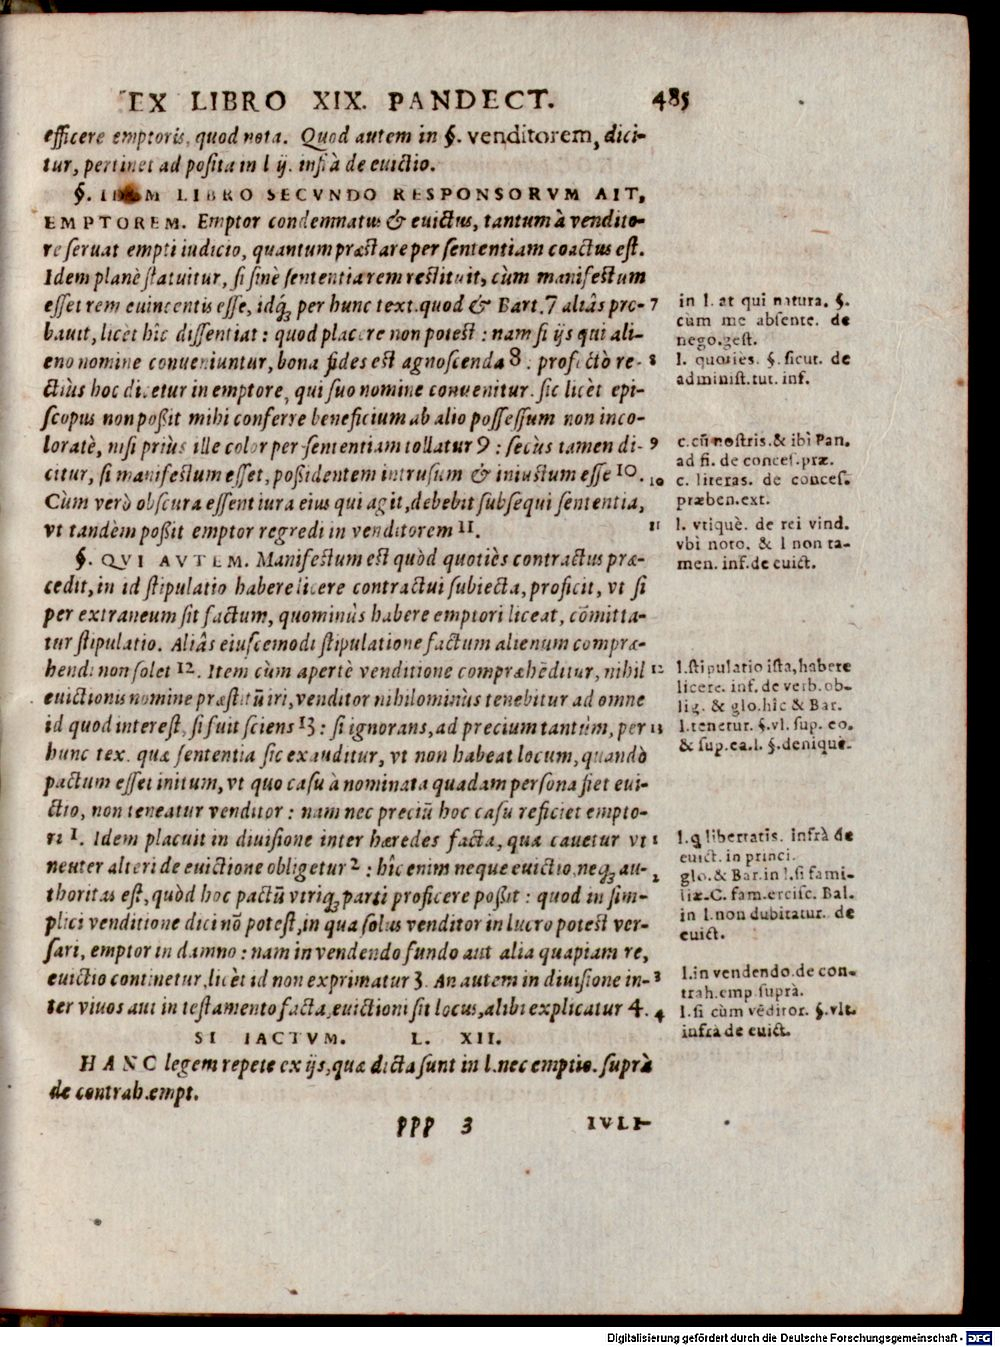 EX LIBRO XIX. PANDECT. 485
efficere emptoris, quod nota. Quod autem in §. venditorem, dici-
tur, pertinet ad posita in l ij. infrà de euictio.
§. IDEM LIBRO SECVNDO RESPONSORVM AIT,
EMPTOREM. Emptor condemnatus & euictus, tantum à vendito-
re seruat empti iudicio, quantum præstare per sententiam coactus est.
Idem planè statuitur, si sinè sententia rem restituit, cùm manifestum
esset rem euincentis esse, idq́; per hunc text. quod & Bart. 7 aliâs pro-
bauit, licèt hîc dissentiat: quod placere non potest: nam si ijs qui ali-
eno nomine conueniuntur, bona fides est agnoscenda 8: profectò re-
ctiùs hoc dicetur in emptore, qui suo nomine conuenitur. sic licèt epi-
scopus non poßit mihi conferre beneficium ab alio possessum non inco-
loratè, nisi priùs ille color per sententiam tollatur 9: secùs tamen di-
citur, si manifestum esset, poßidentem intrusum & iniustum esse 10.
Cùm verò obscura essent iura eius qui agit, debebit subsequi sententia,
vt tandèm poßit emptor regredi in venditorem 11.
§. QVI AVTEM. Manifestum est quòd quotiès contractus præ-
cedit, in id stipulatio habere licere contractui subiecta, proficit, vt si
per extraneum sit factum, quominùs habere emptori liceat, cōmitta-
tur stipulatio. Aliâs eiuscemodi stipulatione factum alienum compræ-
hendi non solet 12. Item cùm apertè venditione compræhēditur, nihil
euictionis nomine præstitū iri, venditor nihilominùs tenebitur ad omne
id quod interest, si fuit sciens 13: si ignorans, ad precium tantùm, per
hunc tex. quæ sententia sic exauditur, vt non habeat locum, quandò
pactum esset initum, vt quo casu à nominata quadam persona fiet eui-
ctio, non teneatur venditor: nam nec preciū hoc casu reficiet empto-
ri 1. Idem placuit in diuisione inter hæredes facta, qua cauetur vt
neuter alteri de euictione obligetur 2: hîc enim neque euictio, neq́; au-
thoritas est, quòd hoc pactū vtriq́; parti proficere poßit: quod in sim-
plici venditione dici nō potest, in qua solus venditor in lucro potest ver-
sari, emptor in damno: nam in vendendo fundo aut alia quapiam re,
euictio continetur, licèt id non exprimatur 3. An autem in diuisione in-
ter viuos aut in testamento facta, euictioni sit locus, alibi explicatur 4.
SI IACTVM. L. XII.
HANC legem repete ex ijs, quæ dicta sunt in l. nec emptio. suprà
de contrah. empt.
ppp 3 IVLI-
7 in l. at qui natura. §.
cùm me absente. de
nego. gest.
8 l. quoties. §. sicut. de
administ. tut. inf.
9 c. cū nostris. & ibi Pan.
ad fi. de conces. præ.
10 c. literas. de conces.
præben. ext.
11 l. vtiquè. de rei vind.
vbi noto. & l non ta-
men. inf. de euict.
12 l. stipulatio ista, habere
licere. inf. de verb. ob-
lig. & glo. hîc & Bar.
13 l. tenetur. §. vl. sup. eo.
& sup. ea. l. §. denique.
1 l. q libertatis. infrà de
euict. in princi.
2 glo. & Bar. in l. si fami-
liæ. C. fam. ercisc. Bal.
in l. non dubitatur. de
euict.
3 l. in vendendo. de con-
trah. emp. suprà.
4 l. si cùm vēditor. §. vlt.
infrà de euict.
Digitalisierung gefördert durch die Deutsche Forschungsgemeinschaft - DFG